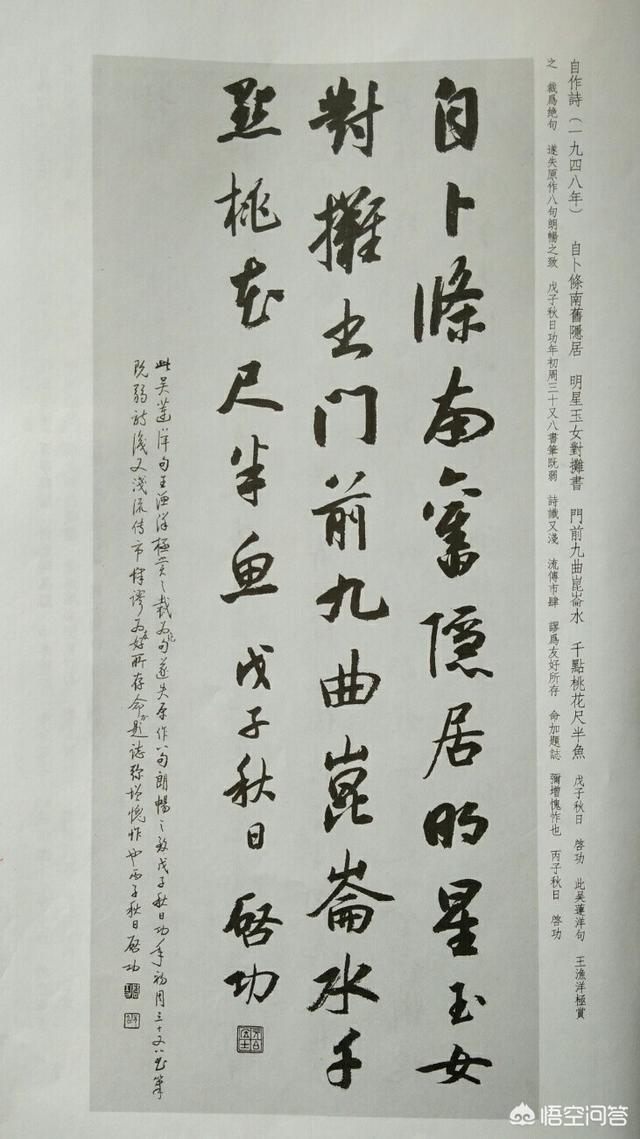 自作詩（一九四八年）　自卜條南舊隱居　明星玉女對攤書　門前九曲崑崙水　千點桃花尺半魚　戊子秋日　啓功　此吴蓮洋句　王漁洋極賞
之　裁爲絶句　遂失原作八句朗暢之致　戊子秋日功年初周三十又八書筆既弱　詩識又淺　流傳市肆　謬爲友好所存　命加題誌　彌增愧怍也　丙子秋日　啓功
自卜條南舊隱居明星玉女
對攤書門前九曲崑崙水千
點桃花尺半魚戊子秋日啓功
此吴蓮洋句王漁洋極賞之裁爲絶句遂失原作八句朗暢之致戊子秋日功年初周三十又八書筆
既弱詩識又淺流傳市肆謬爲友好所存命加題誌彌增愧怍也丙子秋日啓功
悟空问答